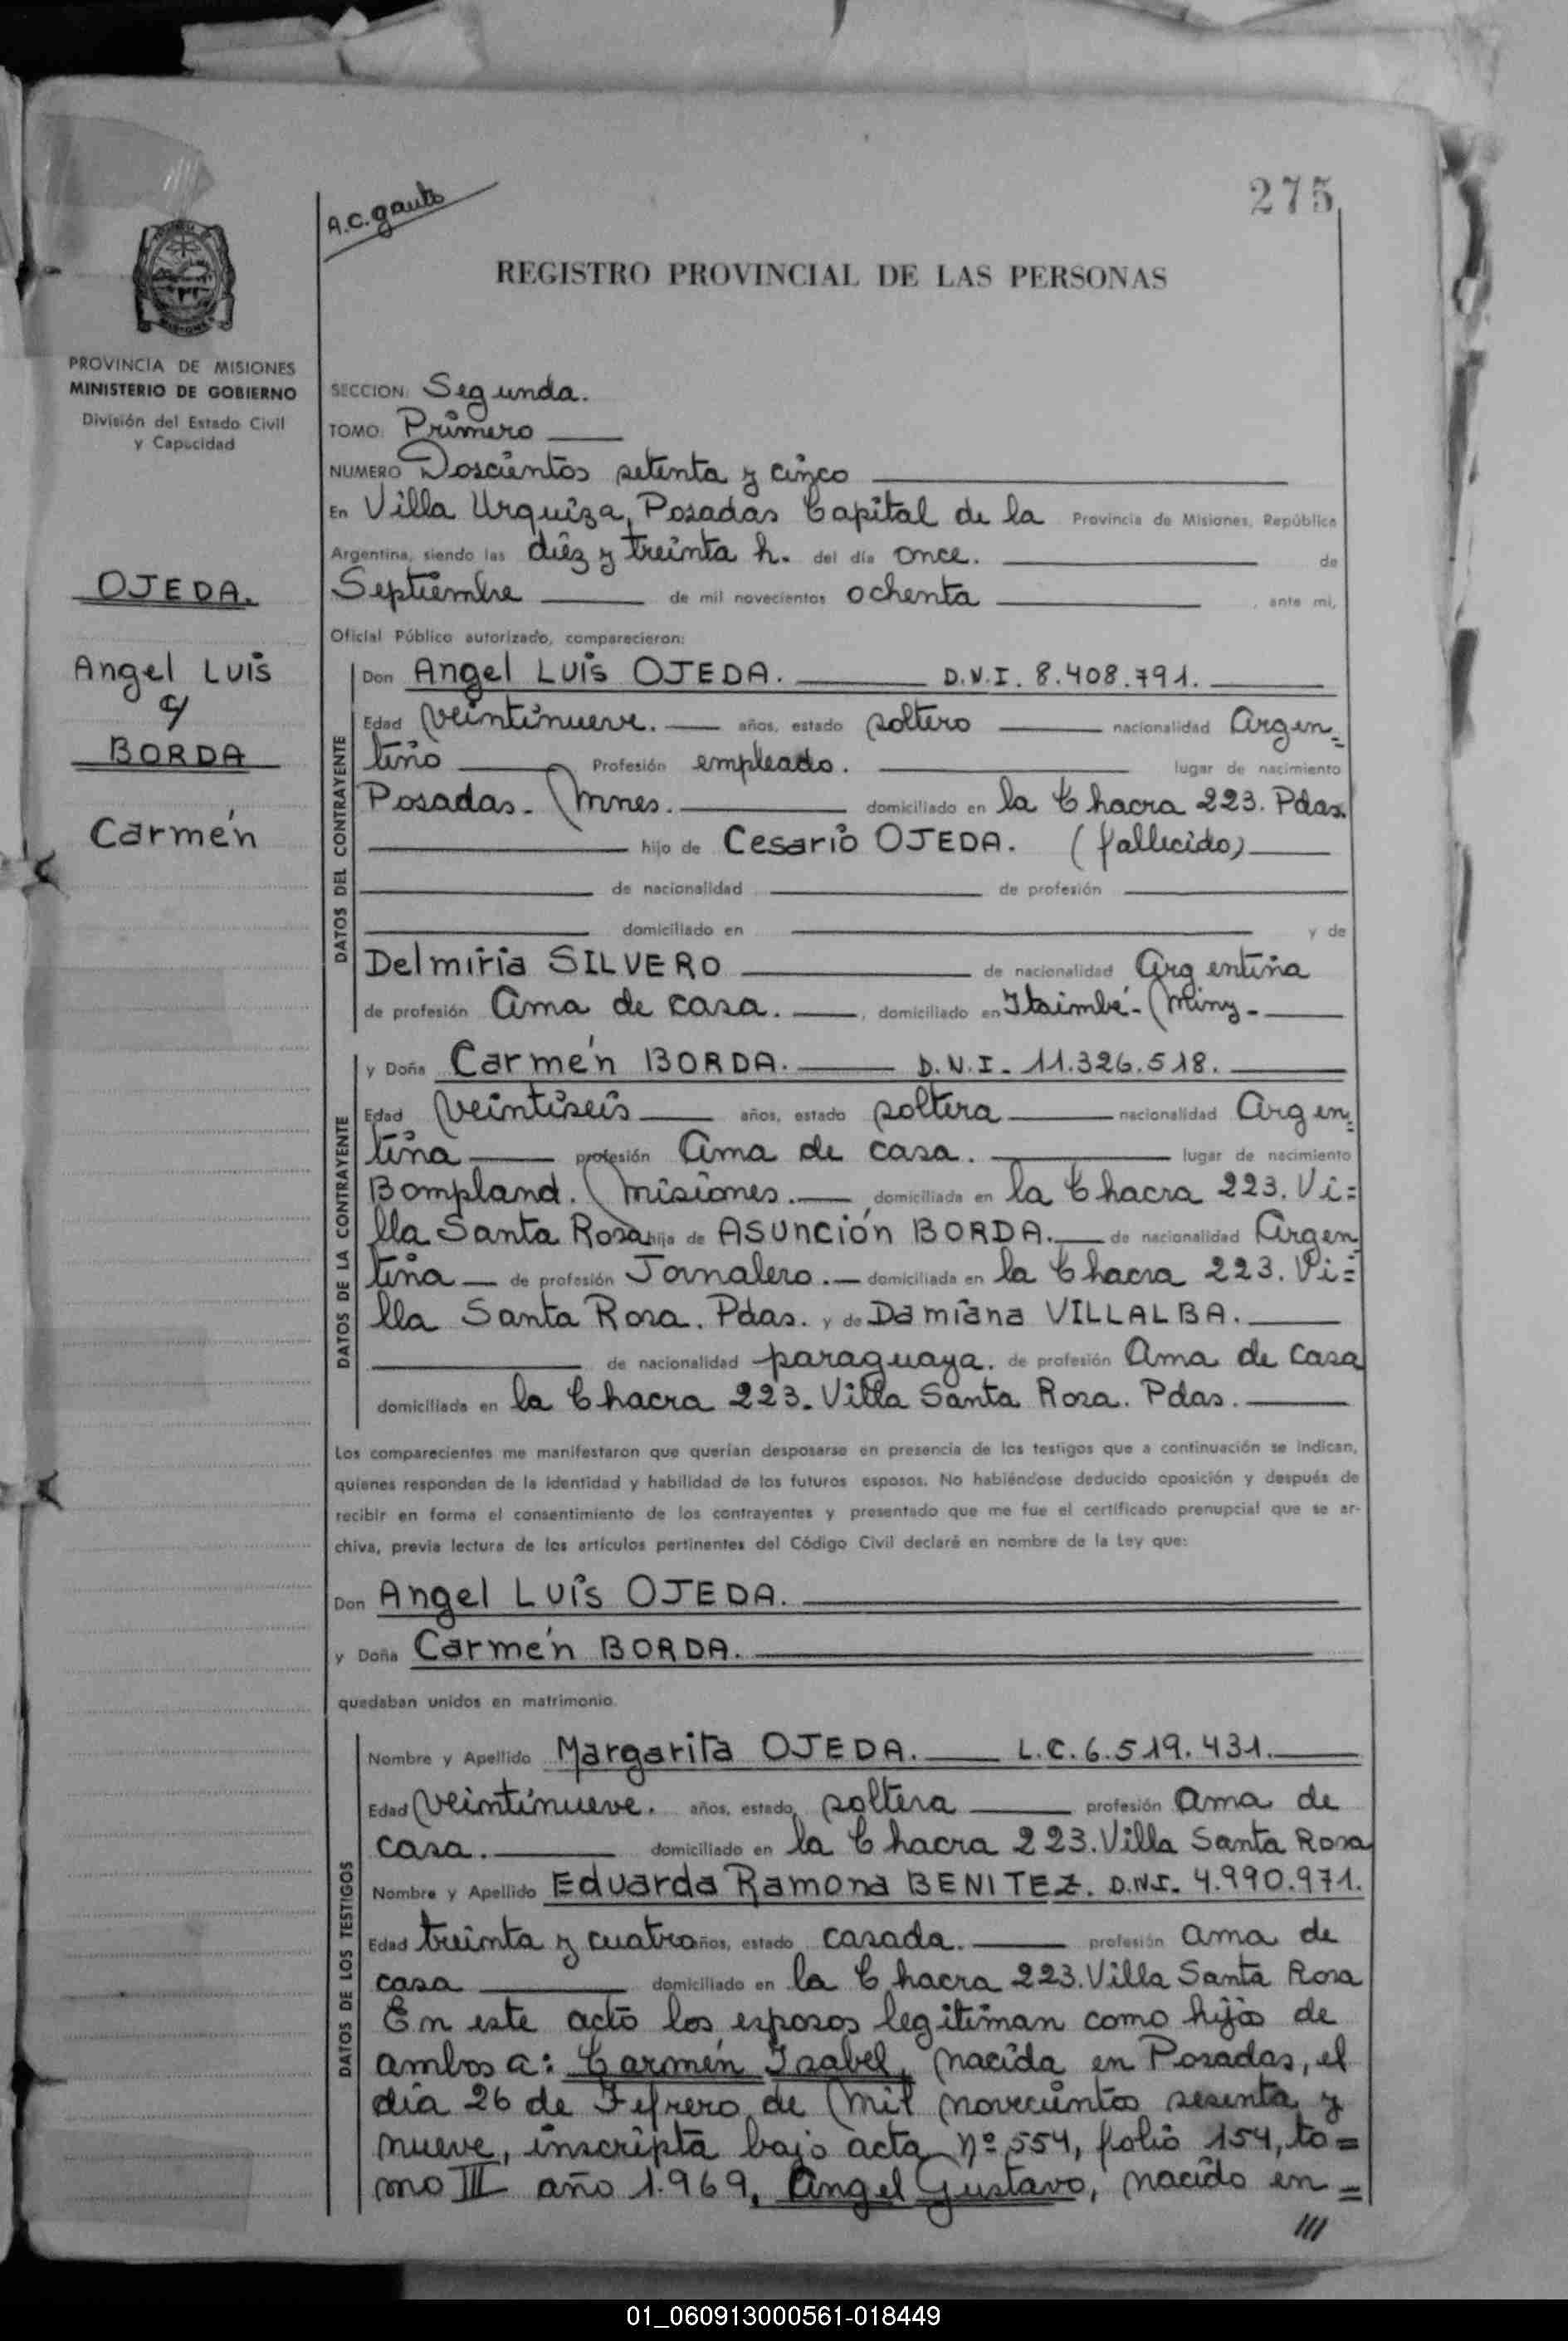 275
A.C. gauto
REGISTRO PROVINCIAL DE LAS PERSONAS
PROVINCIA DE MISIONES
MINISTERIO DE GOBIERNO
División del Estado Civil
y Capacidad
OJEDA.
Angel Luis
c/
BORDA
Carmén
SECCION: Segunda.
TOMO: Primero
NUMERO Doscientos setenta y cinco
En Villa Urquiza, Posadas Capital de la Provincia de Misiones, República
Argentina, siendo las diéz y treinta h. del día once. de
Septiembre de mil novecientos ochenta, ante mi,
Oficial Público autorizado, comparecieron:
DATOS DEL CONTRAYENTE
Don Angel Luis OJEDA. D.N.I. 8.408.791.
Edad veintinueve. años, estado soltero nacionalidad Argen=
tino Profesión empleado. lugar de nacimiento
Posadas. Mnes. domiciliado en la Chacra 223. Pdas.
hijo de Cesario OJEDA. (fallecido)
de nacionalidad de profesión
domiciliado en y de
Delmiria SILVERO de nacionalidad Argentina
de profesión Ama de casa. , domiciliado en Itaimbé-Miny-
DATOS DE LA CONTRAYENTE
y Doña Carmén BORDA. D.N.I. 11.326.518.
Edad veintiseis años, estado soltera nacionalidad Argen=
tina profesión Ama de casa. lugar de nacimiento
Bompland. Misiones. domiciliada en la Chacra 223. Vi=
lla Santa Rosa hija de ASUNCIÓN BORDA. de nacionalidad Argen
tina de profesión Jornalero. domiciliada en la Chacra 223. Vi=
lla Santa Rosa. Pdas. y de Damiana VILLALBA.
de nacionalidad paraguaya. de profesión Ama de casa
domiciliada en la Chacra 223. Villa Santa Rosa. Pdas.
Los comparecientes me manifestaron que querían desposarse en presencia de los testigos que a continuación se indican,
quienes responden de la identidad y habilidad de los futuros esposos. No habiéndose deducido oposición y después de
recibir en forma el consentimiento de los contrayentes y presentado que me fue el certificado prenupcial que se ar-
chiva, previa lectura de los artículos pertinentes del Código Civil declaré en nombre de la Ley que:
Don Angel Luis OJEDA.
y Doña Carmén BORDA.
quedaban unidos en matrimonio.
DATOS DE LOS TESTIGOS
Nombre y Apellido Margarita OJEDA. L.C. 6.519.431.
Edad veintinueve. años, estado soltera profesión Ama de
casa. domiciliado en la Chacra 223. Villa Santa Rosa
Nombre y Apellido Eduarda Ramona BENITEZ. D.N.I. 4.990.971.
Edad treinta y cuatro años, estado casada. profesión Ama de
casa domiciliado en la Chacra 223. Villa Santa Rosa
En este acto los esposos legitiman como hijos de
ambos a: Carmén Isabel, nacida en Posadas, el
día 26 de Febrero de mil novecientos sesenta y
nueve, inscripta bajo acta nº 554, folio 154, to=
mo III año 1.969, Angel Gustavo, nacido en =
///
01_060913000561-018449